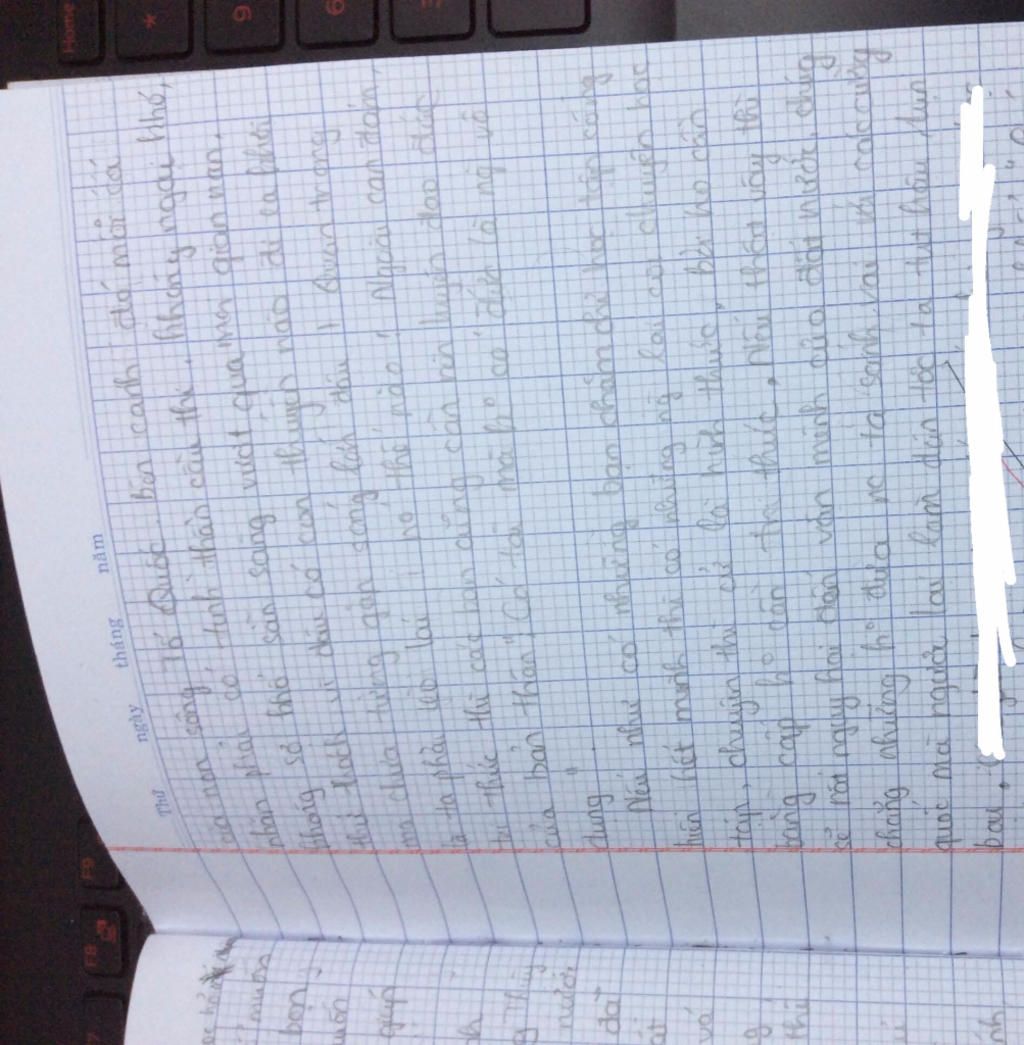 Thứ ngày tháng năm
của non sông Tổ Quốc. Bên cạnh đó mỗi cá
nhân phải có tinh thần cầu thị, không ngại khó,
không sợ khó sẵn sàng vượt qua mọi gian nan,
thử thách vì đâu có con thuyền nào đi ra biển
mà chưa từng gặp sóng lớn đâu! Quan trọng
là ta phải lèo lái nó thế nào! Ngoài can đảm,
tri thức thì các bạn cũng cần rèn luyện đạo đức
của bản thân "Có tài mà ko có đức là ng vô
dụng"
Nếu như có những bạn chăm chỉ học tập cống
hiến hết mình thì có những ng lại coi chuyện học
tập, chuyện thi cử là hình thức, bởi họ cần
bằng cấp ko cần tri thức. Nếu thật vậy thì
sẽ rất nguy hại đến văn minh của đất nước, chúng
chẳng những ko đưa nc ta sánh vai với các cường
quốc mà người lại làm dân tộc ta tụt hậu, lụn
bại.
Home
*
9
6
F9
F8
muốn
bọn
giúp
nước
vó
thi